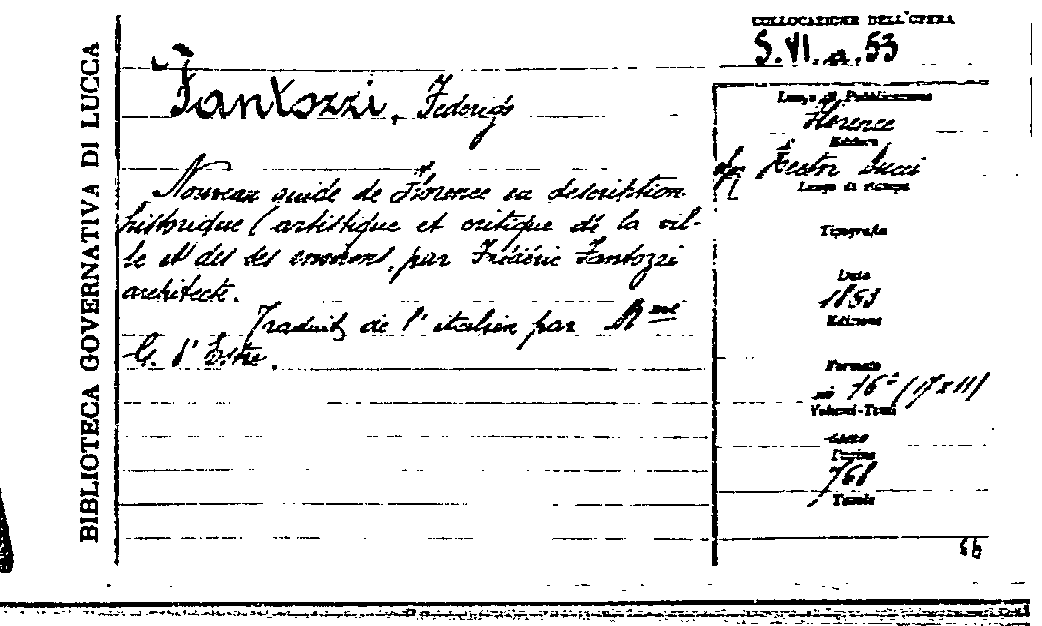 BIBLIOTECA GOVERNATIVA DI LUCCA
COLLOCAZIONE DELL'OPERA
S. VI. a. 53
Fantozzi, Federigo
Nouveau guide de Florence ou description
historique (artistique et critique de la vil-
le et des environs, par Frédéric Fantozzi
architecte.
Traduit de l'italien par M
G. d'
Luogo di Pubblicazione
Florence
Editore
Ducci
Luogo di stampa
Tipografia
Data
1853
Edizione
Formato
in 16° (17 x 11)
Volumi-Tomi
Pagine
768
Tavole